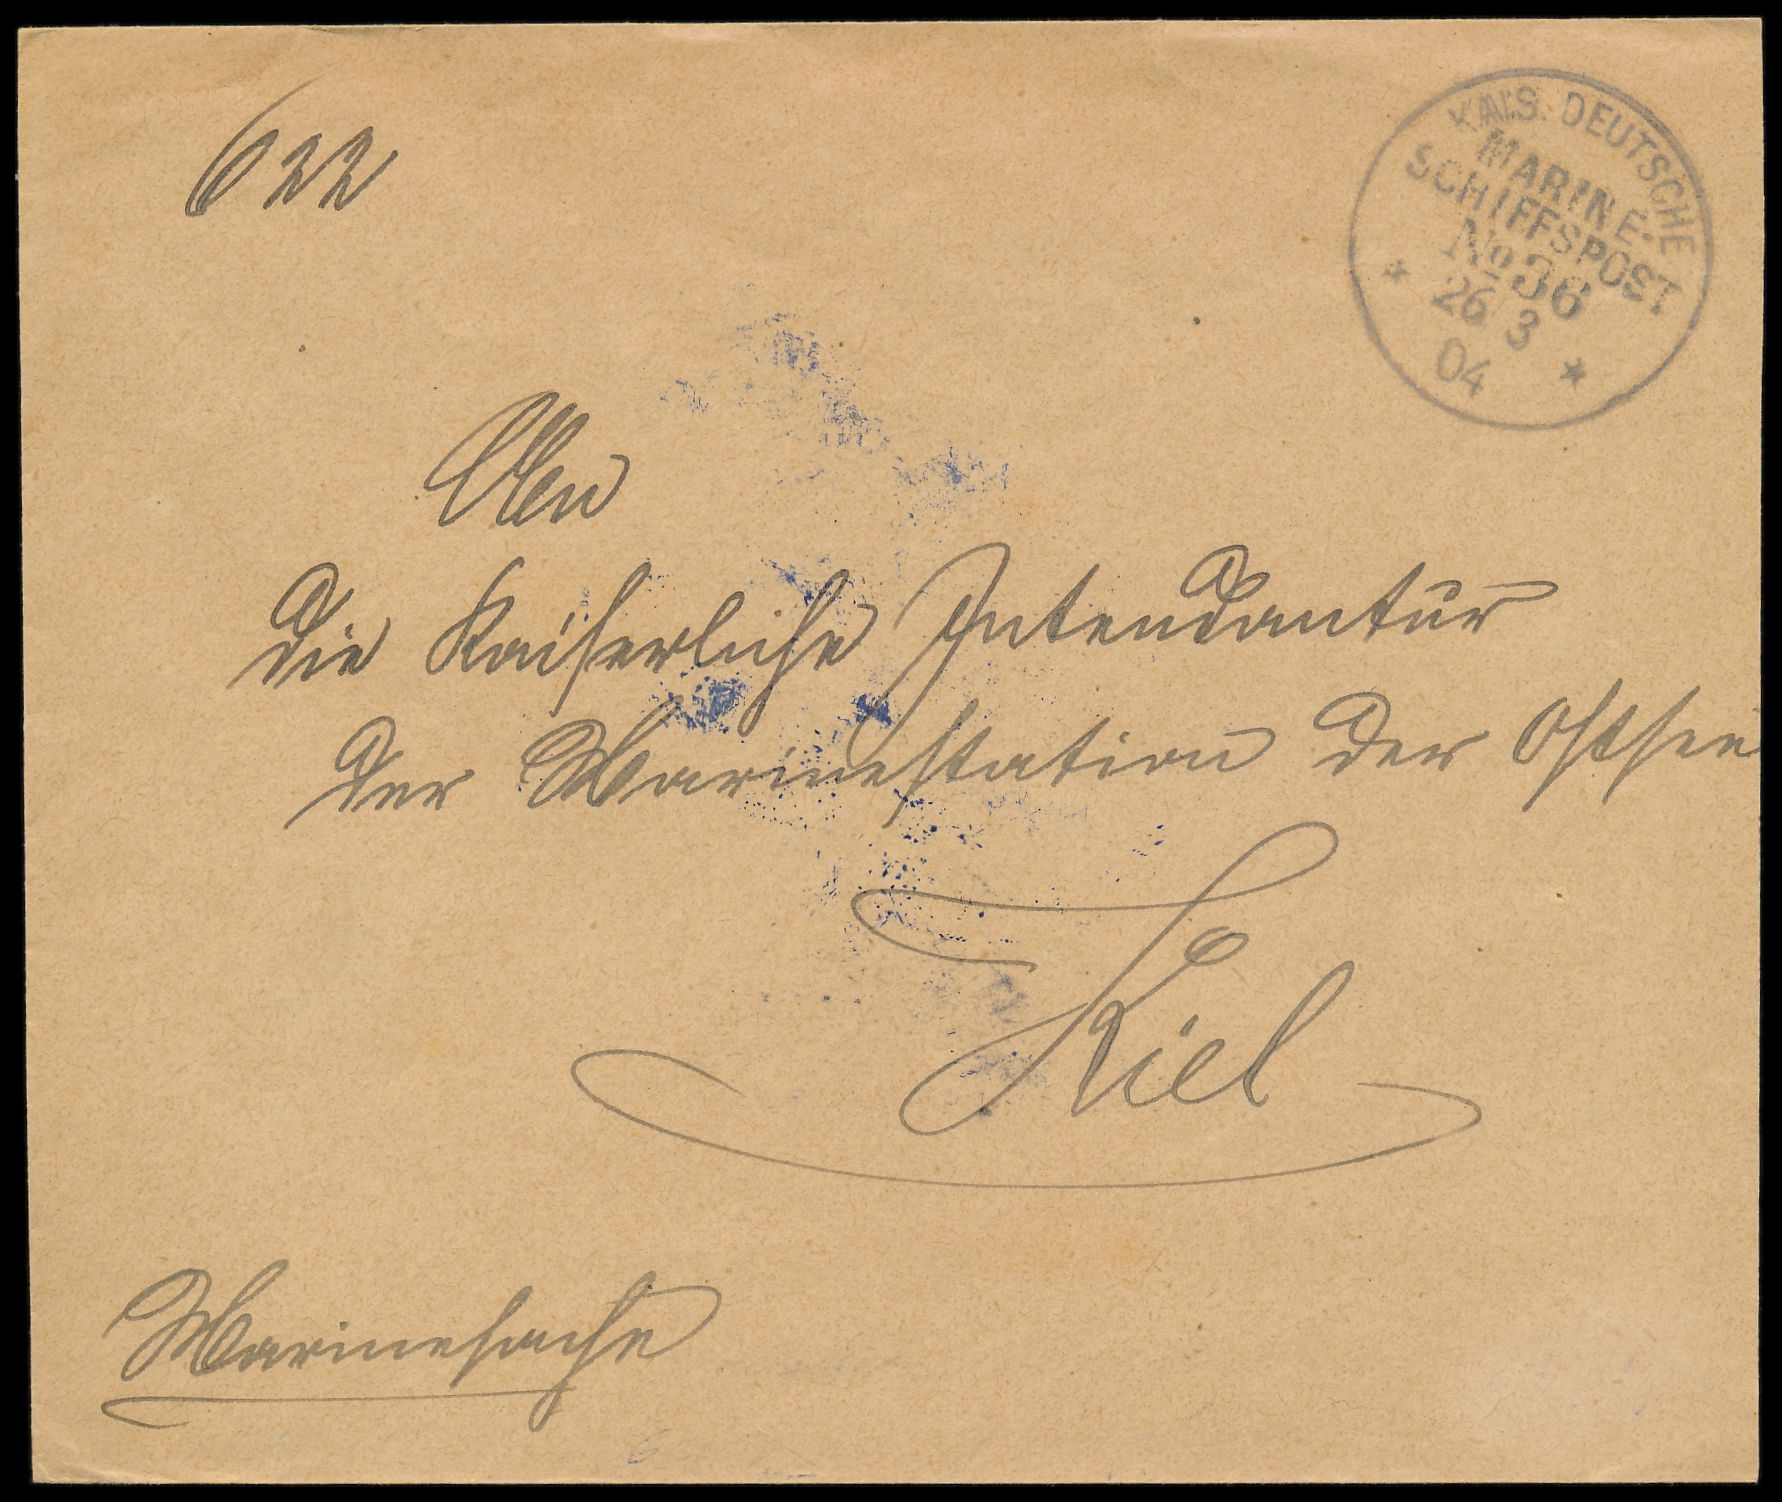 622
KAIS. DEUTSCHE
MARINE-
SCHIFFSPOST
No 36
26 3
04
An
die Kaiserliche Intendantur
der Marinestation der Ostsee
Kiel
Marinesache